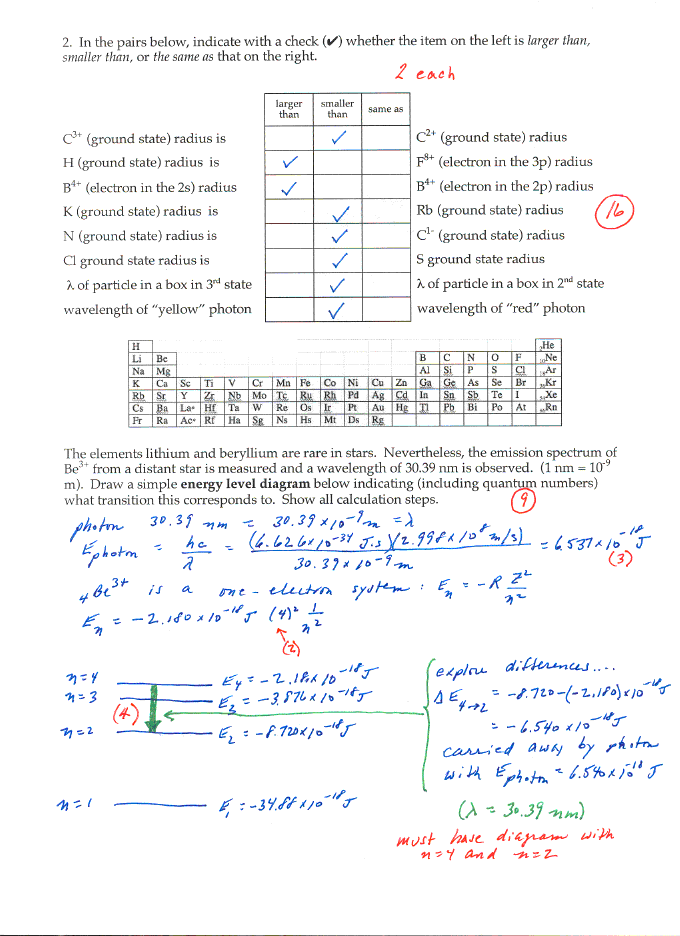 2. In the pairs below, indicate with a check (✔) whether the item on the left is larger than,
smaller than, or the same as that on the right.
2 each
larger than smaller than same as
C³⁺ (ground state) radius is ✓ C²⁺ (ground state) radius
H (ground state) radius is ✓ F⁸⁺ (electron in the 3p) radius
B⁴⁺ (electron in the 2s) radius ✓ B⁴⁺ (electron in the 2p) radius
K (ground state) radius is ✓ Rb (ground state) radius 16
N (ground state) radius is ✓ C¹⁻ (ground state) radius
Cl ground state radius is ✓ S ground state radius
λ of particle in a box in 3rd state ✓ λ of particle in a box in 2nd state
wavelength of "yellow" photon ✓ wavelength of "red" photon
H He
Li Be B C N O F Ne
Na Mg Al Si P S Cl Ar
K Ca Sc Ti V Cr Mn Fe Co Ni Cu Zn Ga Ge As Se Br Kr
Rb Sr Y Zr Nb Mo Tc Ru Rh Pd Ag Cd In Sn Sb Te I Xe
Cs Ba La* Hf Ta W Re Os Ir Pt Au Hg Tl Pb Bi Po At Rn
Fr Ra Ac* Rf Ha Sg Ns Hs Mt Ds Rg
The elements lithium and beryllium are rare in stars. Nevertheless, the emission spectrum of
Be³⁺ from a distant star is measured and a wavelength of 30.39 nm is observed. (1 nm = 10⁻⁹
m). Draw a simple energy level diagram below indicating (including quantum numbers)
what transition this corresponds to. Show all calculation steps.
9
photon 30.39 nm = 30.39 x 10⁻⁹ m = λ
E photon = hc/λ = (6.626x10⁻³⁴ J.s)(2.998x10⁸ m/s) / 30.39x10⁻⁹ m = 6.537x10⁻¹⁸ J
(3)
₄Be³⁺ is a one-electron system: Eₙ = -R Z²/n²
Eₙ = -2.180x10⁻¹⁸ J (4)² 1/n²
(2)
n=4 E₄ = -2.18x10⁻¹⁸ J
n=3 E₃ = -3.876x10⁻¹⁸ J
(4)
n=2 E₂ = -8.720x10⁻¹⁸ J
n=1 E₁ = -34.88x10⁻¹⁸ J
explore differences....
ΔE₄→₂ = -8.720-(-2.180)x10⁻¹⁸ J
= -6.540x10⁻¹⁸ J
carried away by photon
with E photon = 6.540x10⁻¹⁸ J
(λ = 30.39 nm)
must have diagram with
n=4 and n=2